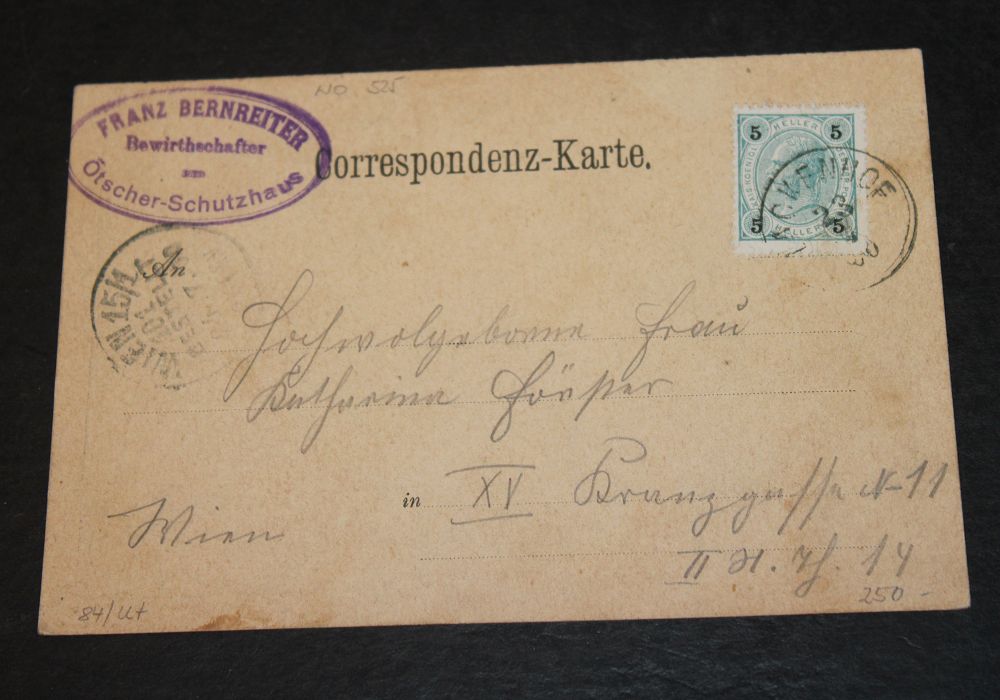 NO. 525
FRANZ BERNREITER
Bewirthschafter
am
Ötscher-Schutzhaus
Correspondenz-Karte.
5 HELLER 5
5 HELLER 5
An
WIEN 15/1
BESTELLT
Hochwolgeborne Frau
Katharina Förster
in XV Kranzgasse N-11
Wien
II St. Th. 14
84/Ut
250-